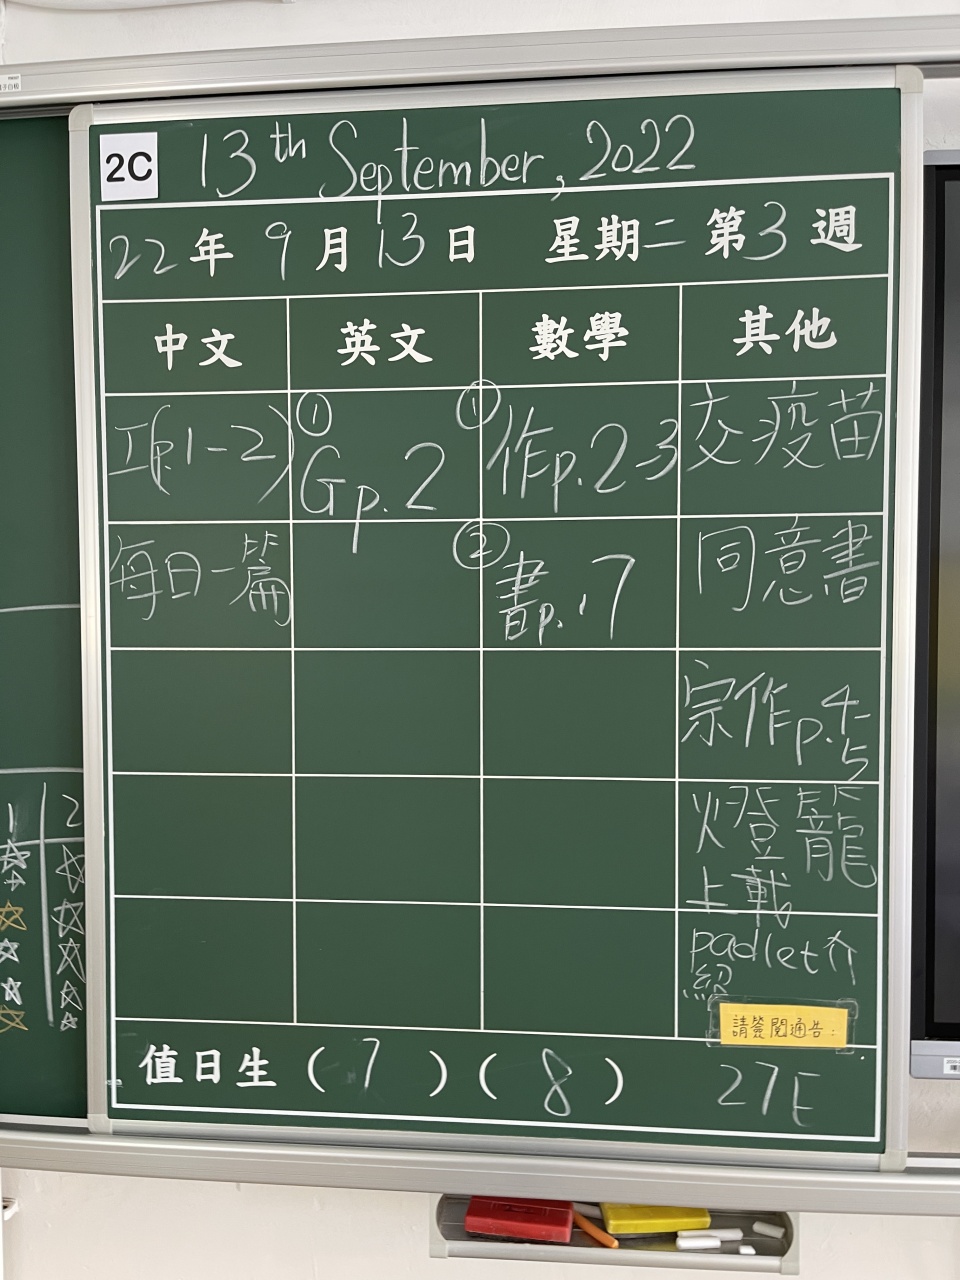 2C 13th September, 2022
22年9月13日 星期二 第3週
中文 英文 數學 其他
工(1-2) ① Gp.2 ① 作p.2-3 交疫苗
每日一篇 ② 書p.17 同意書
宗作p.4-5
灯登籠
上載
padlet介
紹
請簽閱通告:
值日生 (7) (8) 27E
1 2